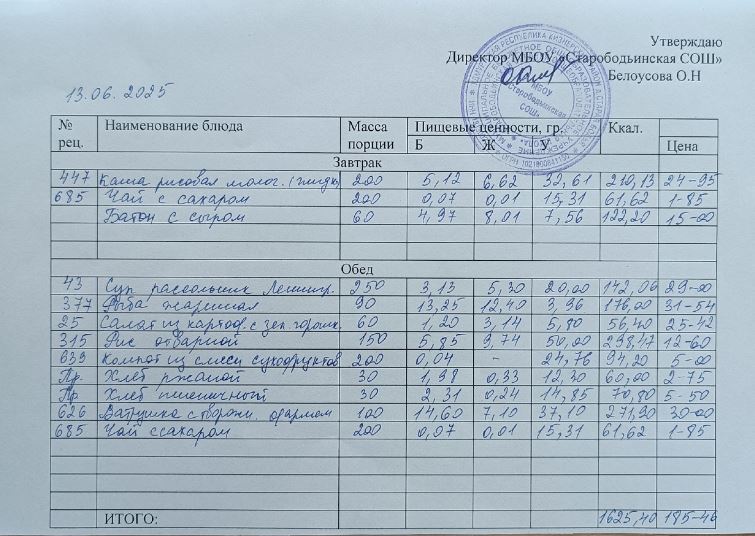 Утверждаю
Директор МБОУ «Старободьинская СОШ»
Белоусова О.Н
13.06.2025
№ рец. Наименование блюда Масса порции Пищевые ценности, гр. Б Ж У Ккал. Цена
Завтрак
447 Каша рисовая молоч. (жидк) 200 5,12 6,62 32,61 210,13 24-95
685 Чай с сахаром 200 0,07 0,01 15,31 61,62 1-85
Батон с сыром 60 4,97 8,01 7,56 122,20 15-00
Обед
43 Суп рассольник Ленингр. 250 3,13 5,30 20,00 142,06 29-00
377 Рыба жареная 90 13,25 12,40 3,96 176,00 31-54
25 Салат из картоф. с зел. горошк. 60 1,20 3,14 5,80 56,40 25-42
315 Рис отварной 150 5,85 9,74 50,00 298,47 12-60
639 Компот из смеси сухофруктов 200 0,04 - 24,76 94,20 5-00
Пр. Хлеб ржаной 30 1,98 0,33 12,30 60,00 2-75
Пр. Хлеб пшеничный 30 2,31 0,24 14,85 70,80 5-50
626 Ватрушка с творожн. фаршом 100 14,60 7,10 37,10 271,90 30-00
685 Чай с сахаром 200 0,07 0,01 15,31 61,62 1-85
ИТОГО: 1625,40 185-46
МБОУ
Старободьинская
СОШ»